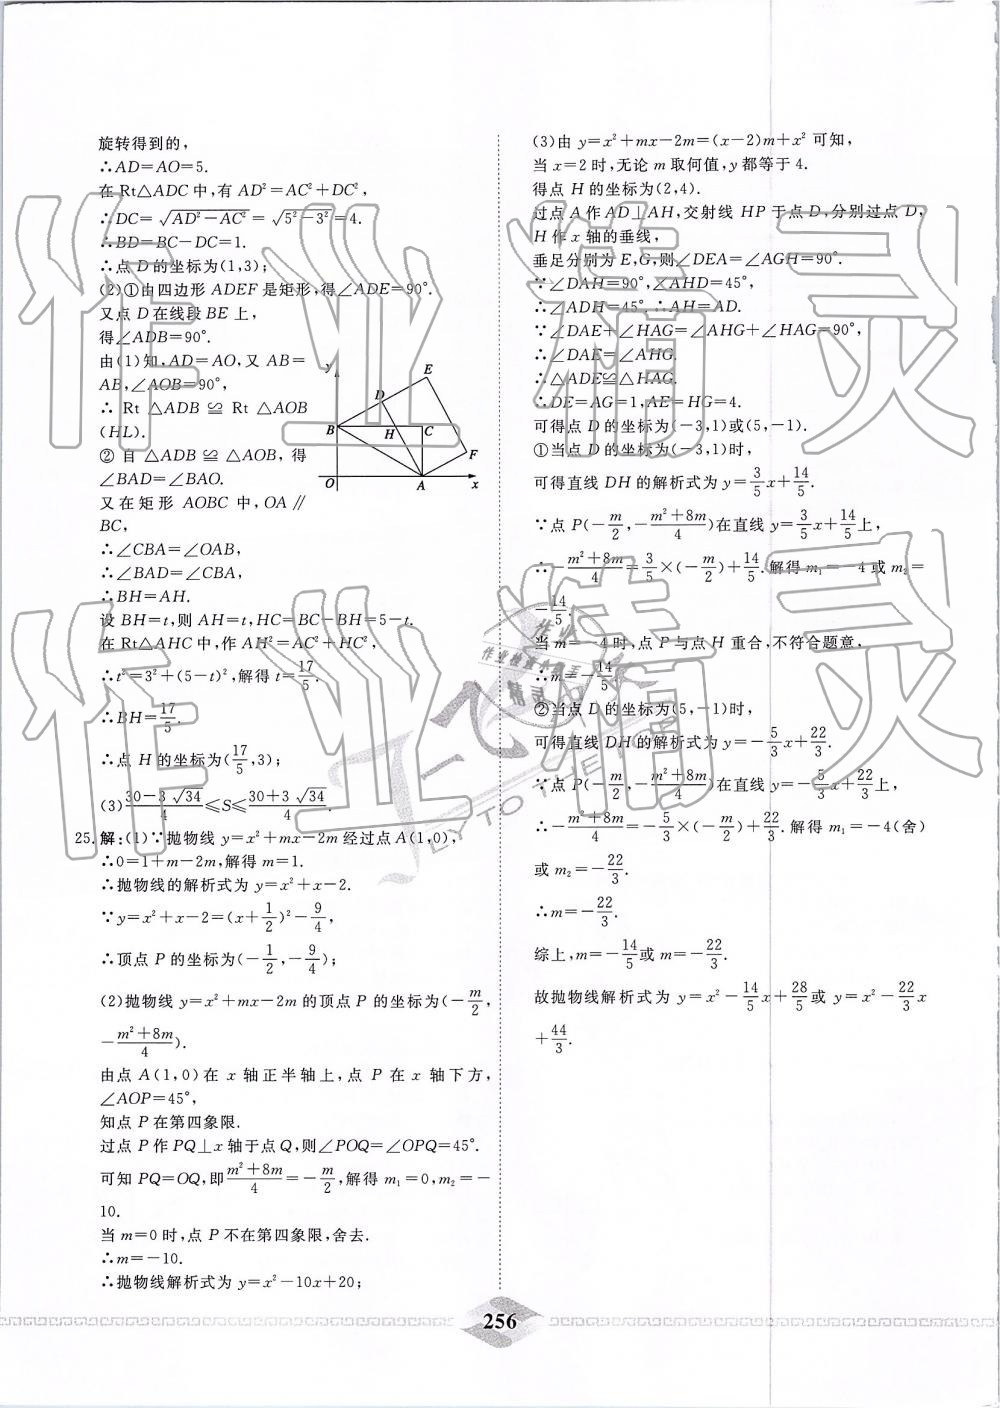 旋转得到的,
∴AD=AO=5.
在 Rt△ADC 中,有 AD²=AC²+DC²,
∴DC=√(AD²-AC²)=√(5²-3²)=4.
∴BD=BC-DC=1.
∴点 D 的坐标为(1,3);
(2)①由四边形 ADEF 是矩形,得∠ADE=90°.
又点 D 在线段 BE 上,
得∠ADB=90°.
由(1)知,AD=AO,又 AB=
AB,∠AOB=90°,
∴ Rt △ADB ≌ Rt △AOB
(HL).
② 自 △ADB ≌ △AOB, 得
∠BAD=∠BAO.
又在矩形 AOBC 中,OA∥
BC,
∴∠CBA=∠OAB,
∴∠BAD=∠CBA,
∴BH=AH.
设 BH=t,则 AH=t,HC=BC-BH=5-t.
在 Rt△AHC 中,作 AH²=AC²+HC²,
∴t²=3²+(5-t)²,解得 t=17/5.
∴BH=17/5.
∴点 H 的坐标为(17/5,3);
(3)(30-3√34)/4≤S≤(30+3√34)/4.
y
E
D
B
H
C
F
O
A
x
25.解:(1)∵抛物线 y=x²+mx-2m 经过点 A(1,0),
∴0=1+m-2m,解得 m=1.
∴抛物线的解析式为 y=x²+x-2.
∵y=x²+x-2=(x+1/2)²-9/4,
∴顶点 P 的坐标为(-1/2,-9/4);
(2)抛物线 y=x²+mx-2m 的顶点 P 的坐标为(-m/2,
-(m²+8m)/4).
由点 A(1,0)在 x 轴正半轴上,点 P 在 x 轴下方,
∠AOP=45°,
知点 P 在第四象限.
过点 P 作 PQ⊥x 轴于点 Q,则∠POQ=∠OPQ=45°.
可知 PQ=OQ,即(m²+8m)/4=-m/2,解得 m₁=0,m₂=-
10.
当 m=0 时,点 P 不在第四象限,舍去.
∴m=-10.
∴抛物线解析式为 y=x²-10x+20;
(3)由 y=x²+mx-2m=(x-2)m+x² 可知,
当 x=2 时,无论 m 取何值,y 都等于 4.
得点 H 的坐标为(2,4).
过点 A 作 AD⊥AH,交射线 HP 于点 D,分别过点 D,
H 作 x 轴的垂线,
垂足分别为 E,G,则∠DEA=∠AGH=90°.
∵∠DAH=90°,∠AHD=45°,
∴∠ADH=45°,∴AH=AD.
∵∠DAE+∠HAG=∠AHG+∠HAG=90°,
∴∠DAE=∠AHG.
∴△ADE≌△HAG.
∴DE=AG=1,AE=HG=4.
可得点 D 的坐标为(-3,1)或(5,-1).
①当点 D 的坐标为(-3,1)时,
可得直线 DH 的解析式为 y=3/5x+14/5.
∵点 P(-m/2,-(m²+8m)/4)在直线 y=3/5x+14/5上,
∴-(m²+8m)/4=3/5×(-m/2)+14/5.解得 m₁=-4 或 m₂=
-14/5.
当 m=-4 时,点 P 与点 H 重合,不符合题意,
∴m=-14/5.
②当点 D 的坐标为(5,-1)时,
可得直线 DH 的解析式为 y=-5/3x+22/3.
∵点 P(-m/2,-(m²+8m)/4)在直线 y=-5/3x+22/3上,
∴-(m²+8m)/4=-5/3×(-m/2)+22/3.解得 m₁=-4(舍)
或 m₂=-22/3.
∴m=-22/3.
综上,m=-14/5或 m=-22/3.
故抛物线解析式为 y=x²-14/5x+28/5或 y=x²-22/3x
+44/3.
256
作业精灵
作业精灵